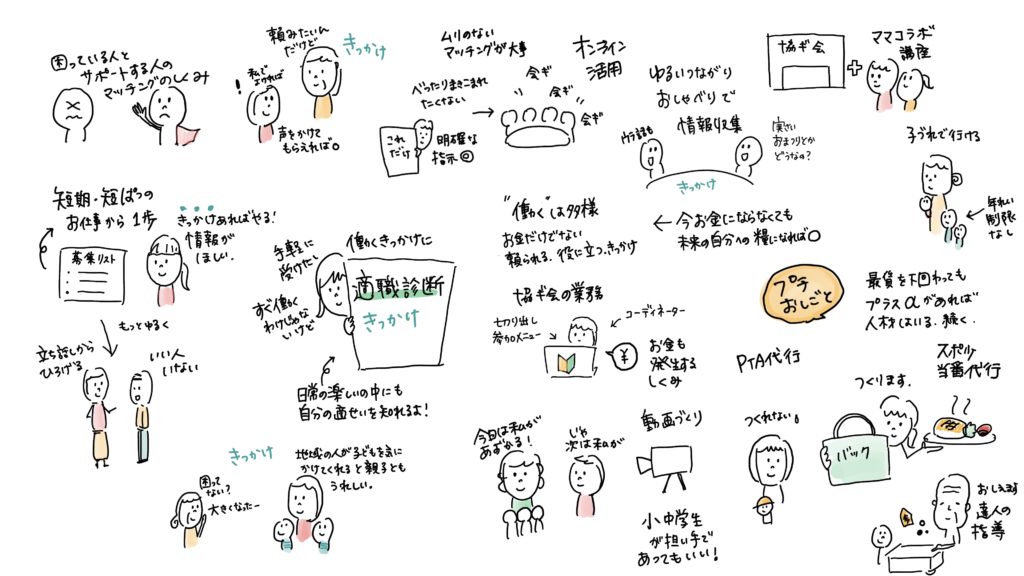 困っている人と
サポートする人の
マッチングのしくみ
頼みたいん
だけど
きっかけ
!
私で
よければ
声をかけて
もらえれば○
ムリのない
マッチングが大事
べったりまきこまれ
たくない
これ
だけ
明確な
指示◎
オンライン
活用
会ぎ
会ぎ
会ぎ
ゆるいつながり
おしゃべりで
情報収集
ウラ話も
実さい
おまつりとか
どうなの?
きっかけ
協ギ会
+
ママコラボ
講座
子づれで行ける
年れい
制限
なし
短期・短ぱつの
お仕事から1歩
募集リスト
きっかけあればやる!
情報が
ほしい
もっとゆるく
立ち話しから
ひろげる
いい人
いない
手軽に
受けたい
すぐ働く
わけじゃな
いけど
働くきっかけに
適職診断
きっかけ
日常の楽しいの中にも
自分の適せいを知れるよ!
"働く"は多様
お金だけでない
頼られる、役に立つ、きっかけ
←今お金にならなくても
未来の自分への糧になれば○
協ギ会の業務
切り出し
参加メニュー
コーディネーター
¥
お金も
発生する
しくみ
プチ
おしごと
最賃を下回わっても
プラスαがあれば
人材はいる、続く、
きっかけ
困って
ない?
大きくなったー
地域の人が子どもを気に
かけてくれると親子とも
うれしい。
今日は私が
あずかる!
じゃ
次は私が
動画づくり
小中学生
が担い手で
あってもいい!
PTA代行
つくれない。
つくります。
バック
スポ少
当番代行
おしえます
達人の
指導